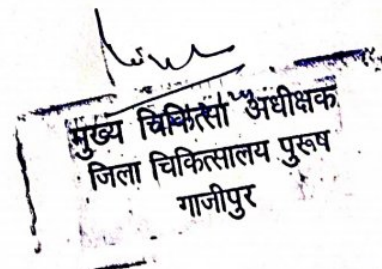 मुख्य चिकित्सा अधीक्षक
जिला चिकित्सालय पुरूष
गाजीपुर